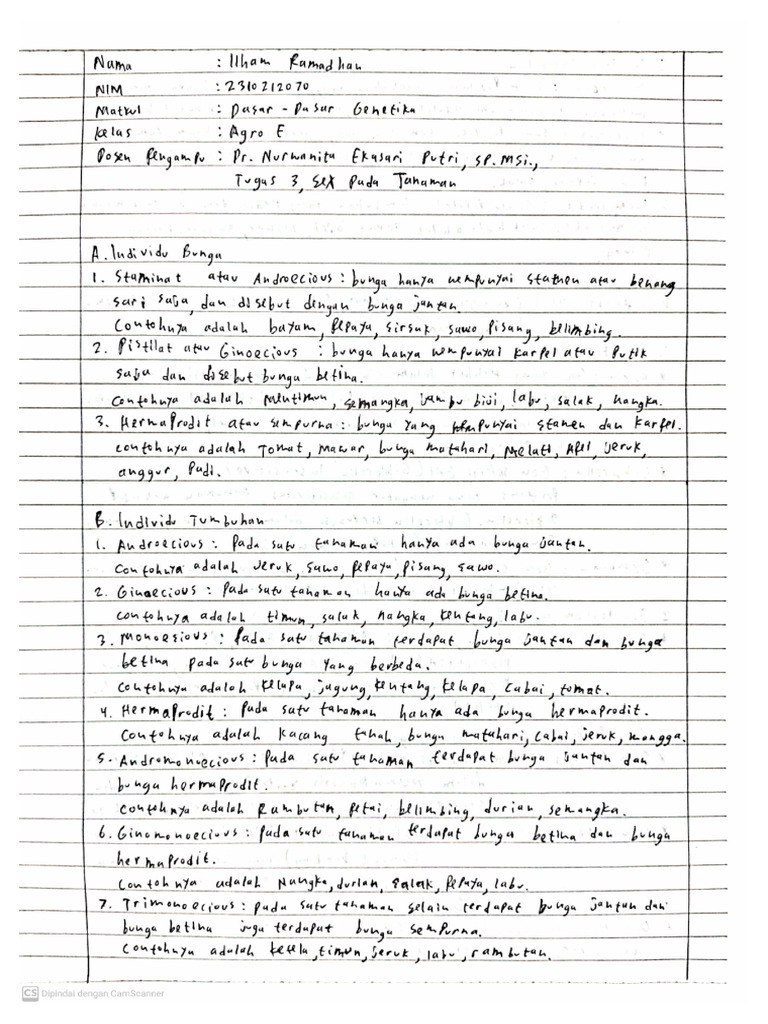 Nama : Ilham Ramadhan
NIM : 2310212070
Matkul : Dasar - Dasar Genetika
Kelas : Agro E
Dosen Pengampu : Dr. Nurwanita Ekasari Putri, SP. MSi.,
Tugas 3, Sex Pada Tanaman
A. Individu Bunga
1. Staminat atau Androecious : bunga hanya mempunyai stamen atau benang
sari saja, dan disebut dengan bunga jantan.
Contohnya adalah bayam, Pepaya, sirsak, sawo, Pisang, belimbing.
2. Pistilat atau Ginoecious : bunga hanya mempunyai karpel atau Putik
saja dan disebut bunga betina.
Contohnya adalah Mentimun, semangka, jambu biji, labu, salak, nangka.
3. Hermaprodit atau sempurna : bunga yang mempunyai stamen dan karpel.
contohnya adalah Tomat, Mawar, bunga matahari, Melati, Apel, jeruk,
anggur, Padi.
B. Individu Tumbuhan
1. Androecious : Pada satu tanaman hanya ada bunga jantan.
Contohnya adalah Jeruk, sawo, Pepaya, Pisang, sawo.
2. Ginoecious : Pada satu tanaman hanya ada bunga betina.
contohnya adalah timun, salak, nangka, kentang, labu.
3. Monoesious : Pada satu tanaman terdapat bunga jantan dan bunga
betina pada satu bunga yang berbeda.
Contohnya adalah Kelapa, jagung, kentang, kelapa, cabai, tomat.
4. Hermaprodit : Pada satu tanaman hanya ada bunga hermaprodit.
Contohnya adalah kacang tanah, bunga matahari, cabai, jeruk, mangga.
5. Andromonoecious : Pada satu tanaman terdapat bunga jantan dan
bunga hermaprodit.
Contohnya adalah Rambutan, petai, belimbing, durian, semangka.
6. Ginomonoecious : Pada satu tanaman terdapat bunga betina dan bunga
hermaprodit.
Contohnya adalah Nangka, durian, salak, Pepaya, labu.
7. Trimonoecious : Pada satu tanaman selain terdapat bunga jantan dan
bunga betina juga terdapat bunga sempurna.
Contohnya adalah ketela, timun, jeruk, labu, rambutan.
CS Dipindai dengan CamScanner